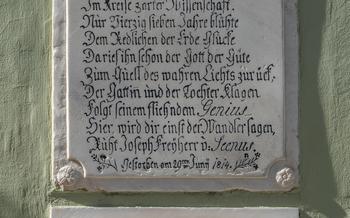 Im Kreise zarter Wissenschaft.
Nur Vierzig sieben Jahre blühte
Dem Redlichen der Erde Glücke
Da rief ihn schon der Gott der Güte
Zum Quell des wahren Lichts zurück,
Der Gattin und der Tochter Klagen
Folgt seinem flieh'nden Genius
Hier, wird dir einst der Wandler sagen,
Ruht Joseph Freyherr v. Seenus.
Gestorben am 20ten Juny 1814.